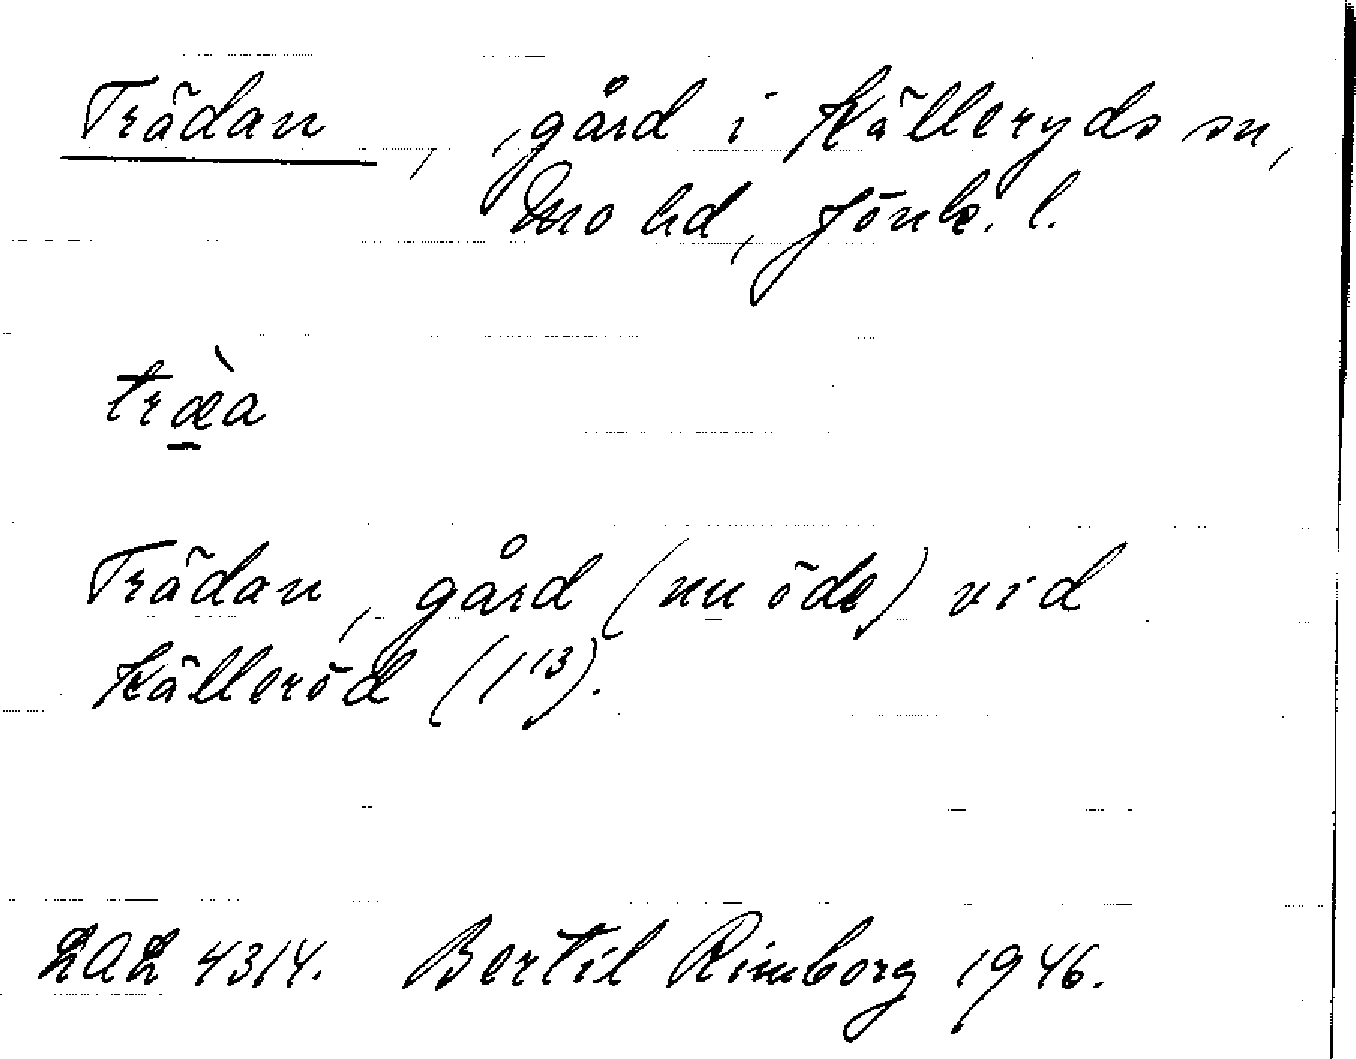 Trädan, gård i Källeryds sn,
Mo hd, Jönk. l.
træ̀a
Trädan, gård (nu öde) vid
Källeröd (1¹³).
LAL 4314. Bertil Rimborg 1946.